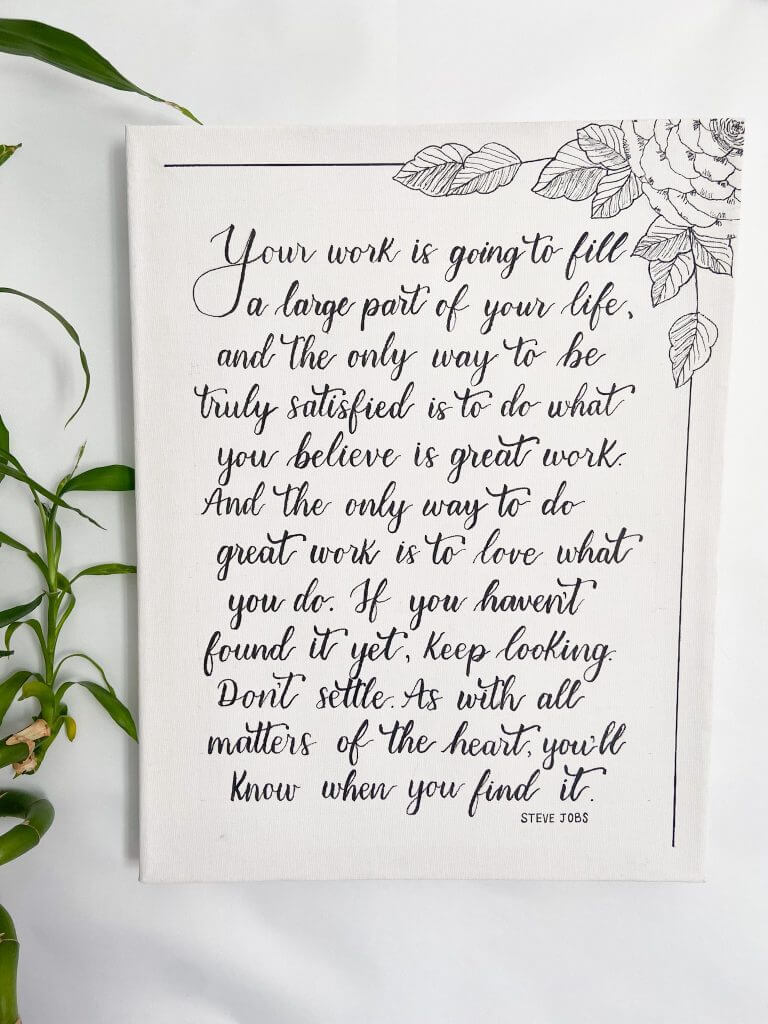 Your work is going to fill
a large part of your life,
and the only way to be
truly satisfied is to do what
you believe is great work.
And the only way to do
great work is to love what
you do. If you haven't
found it yet, keep looking.
Don't settle. As with all
matters of the heart, you'll
know when you find it.
STEVE JOBS